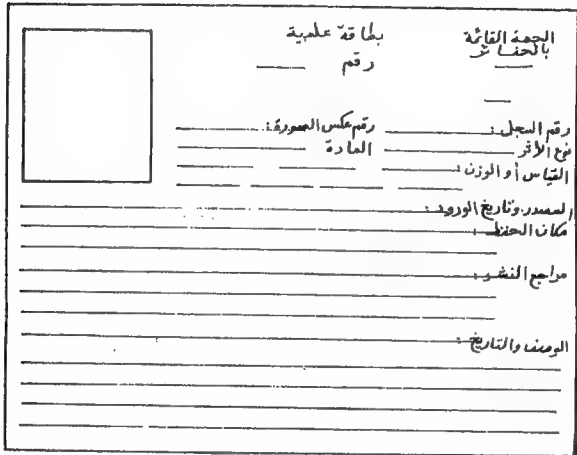 الجهة القائمة بطاقة علمية
بالحفائر رقم
رقم السجل : رقم عكس الصورة :
نوع الأثر المادة
القياس أو الوزن :
المصدر وتاريخ الورود :
مكان الحفظ :
مراجع النشر :
الوصف والتاريخ :